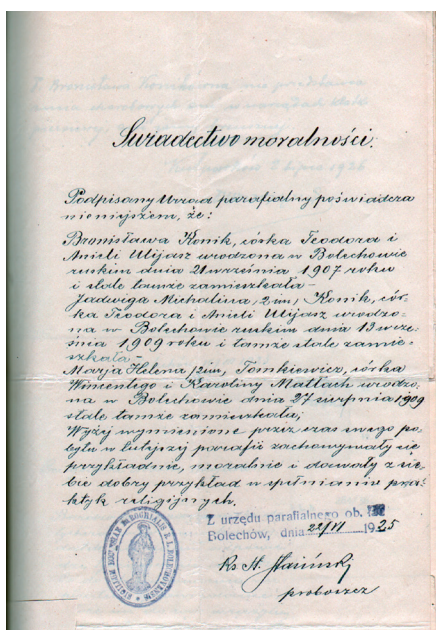 Świadectwo moralności.
Podpisany Urząd parafialny poświadcza
niniejszem, że:
Bronisława Konik, córka Teodora i
Anieli Ulijasz urodzona w Bolechowie
ruskim dnia 21 września 1907 roku
i stale tamże zamieszkała –
Jadwiga Michalina, /2 im/, Konik, cór-
ka Teodora i Anieli Ulijasz urodzo-
na w Bolechowie ruskim dnia 13 wrze-
śnia 1909 roku i tamże stale zamie-
szkała –
Marja Helena /2 im/, Tomkiewicz, córka
Wincentego i Karoliny Matlach urodzo-
na w Bolechowie dnia 27 sierpnia 1909
stale tamże zamieszkała;
Wyżej wymienione przez czas swego po-
bytu w tutejszej parafii zachowywały się
przykładnie, moralnie i dawały z sie-
bie dobry przykład w spełnianiu pra-
ktyk religijnych.
Z urzędu parafialnego ob.
Bolechów, dnia 22/VI 1925
Ks
proboszcz